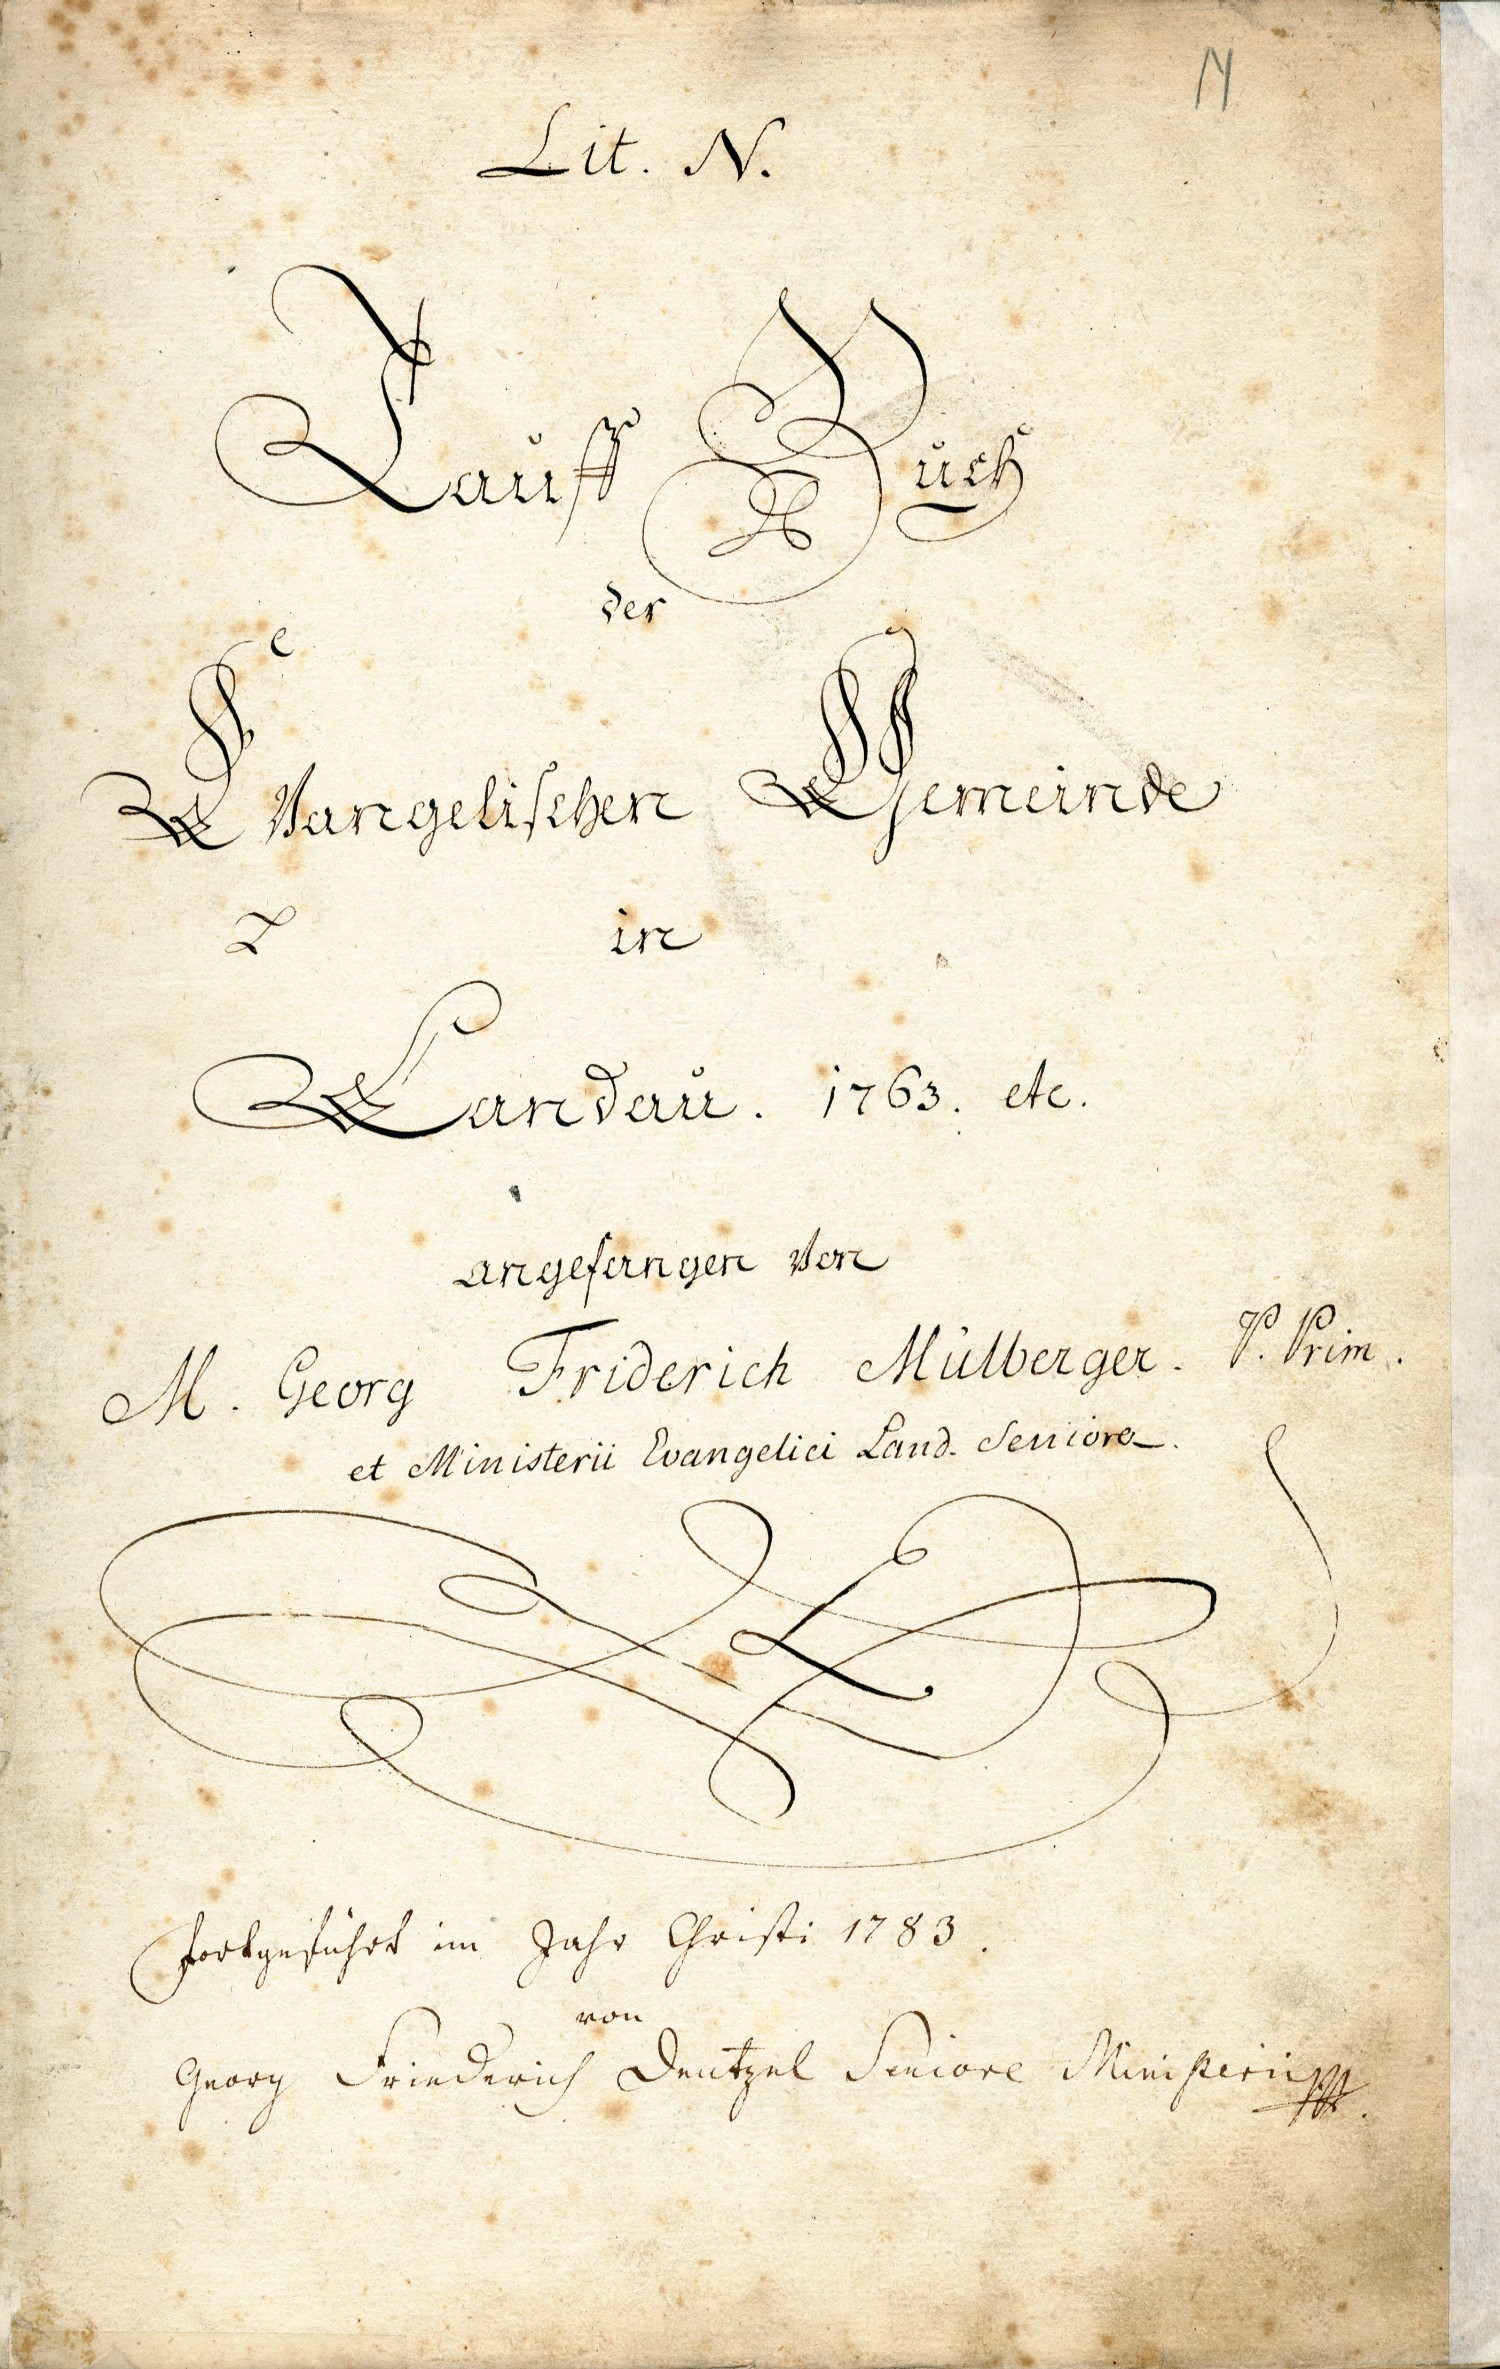 N
Lit. N.
Tauff Buch
der
Evangelischen Gemeinde
in
Landau. 1763. etc.
angefangen von
M. Georg Friderich Mülberger. P. Prim.
et Ministerii Evangelici Land. Seniore.
fortgeführt im Jahr Christi 1783.
von
Georg Friederich Dentzel Seniore Ministerii